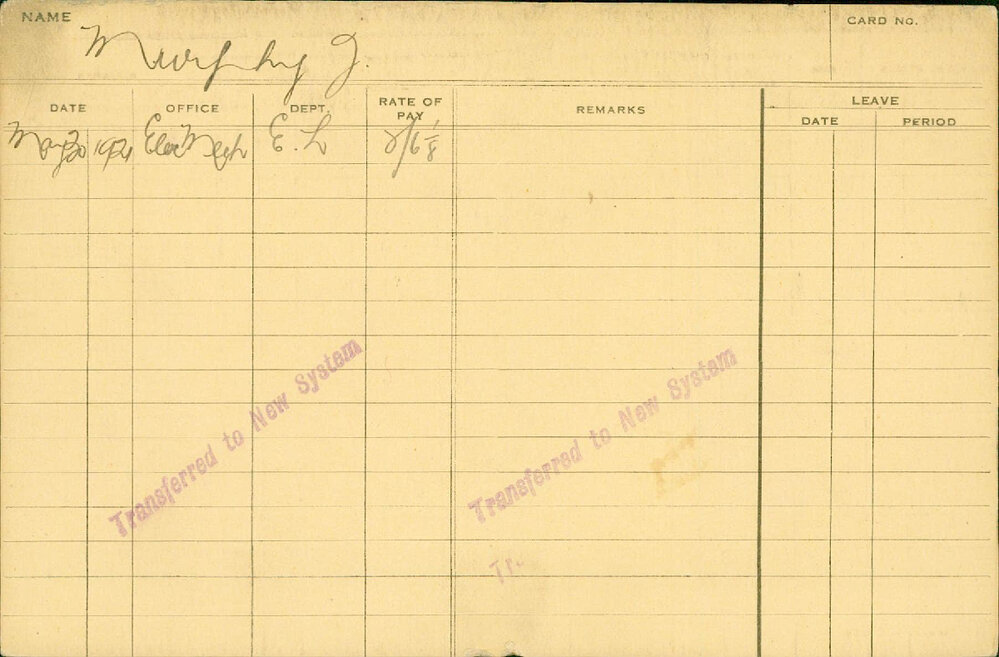 NAME Murphy J. CARD No.
DATE OFFICE DEPT. RATE OF PAY REMARKS LEAVE
DATE PERIOD
May 20 Elec E. L 2/6 1/8
Transferred to New System Transferred to New System
Tr